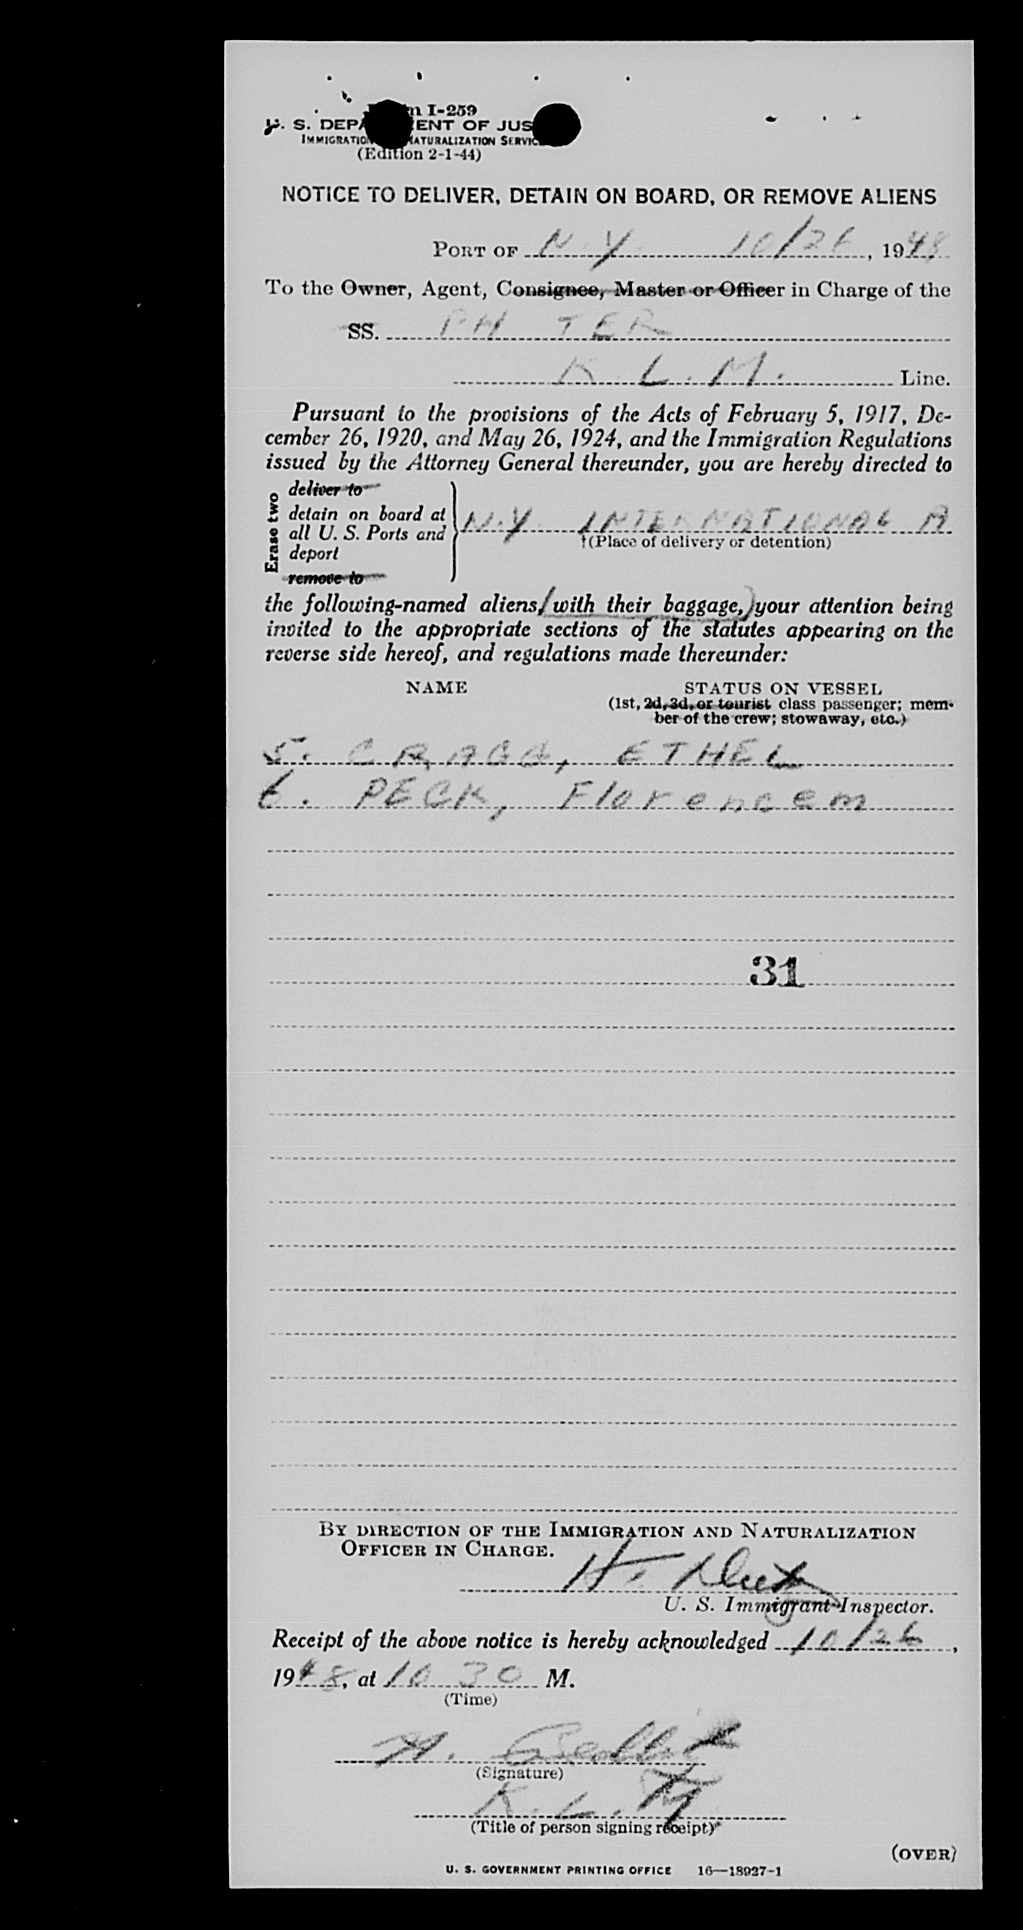 Form I-259
U. S. DEPARTMENT OF JUSTICE
IMMIGRATION AND NATURALIZATION SERVICE
(Edition 2-1-44)
NOTICE TO DELIVER, DETAIN ON BOARD, OR REMOVE ALIENS
PORT OF N.Y. 10/26, 1948
To the Owner, Agent, Consignee, Master or Officer in Charge of the
SS. PH TER
K.L.M. Line.
Pursuant to the provisions of the Acts of February 5, 1917, De-
cember 26, 1920, and May 26, 1924, and the Immigration Regulations
issued by the Attorney General thereunder, you are hereby directed to
Erase two
deliver to
detain on board at
all U. S. Ports and
deport
remove to
N.Y. INTERNATIONAL A
†(Place of delivery or detention)
the following-named aliens, (with their baggage,) your attention being
invited to the appropriate sections of the statutes appearing on the
reverse side hereof, and regulations made thereunder:
NAME STATUS ON VESSEL
(1st, 2d, 3d, or tourist class passenger; mem-
ber of the crew; stowaway, etc.)
5. CRAGG, ETHEL
6. PECK, Florence M
31
BY DIRECTION OF THE IMMIGRATION AND NATURALIZATION
OFFICER IN CHARGE.
H.
U. S. Immigrant Inspector.
Receipt of the above notice is hereby acknowledged 10/26,
1948, at 10 30 M.
(Time)
(Signature)
K.L.M
(Title of person signing receipt)*
(OVER)
U. S. GOVERNMENT PRINTING OFFICE 16—18927-1